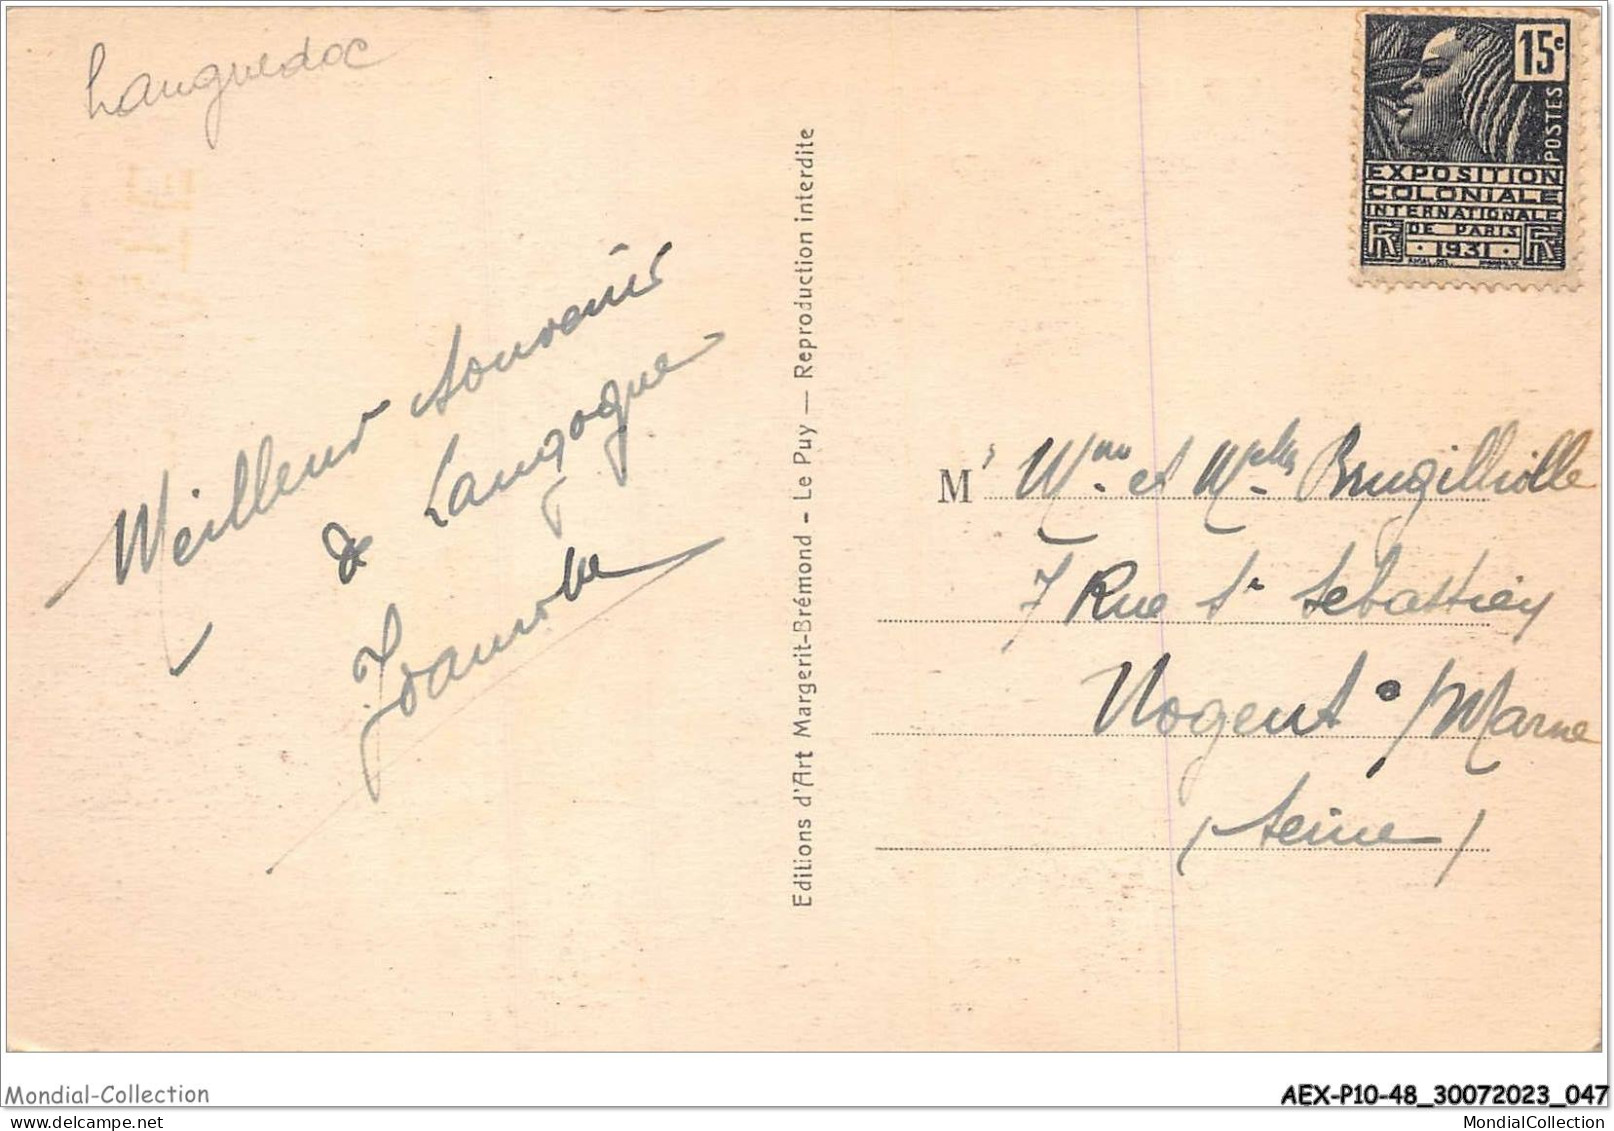 Languedoc
15c
POSTES
EXPOSITION
COLONIALE
INTERNATIONALE
DE PARIS
RF · 1931 · RF
Meilleur souvenir
de Langogne
Editions d'Art Margerit-Brémond - Le Puy — Reproduction interdite
M Mme et Melles Brugilliolle
7 Rue St Sebastien
Nogent s/Marne
(Seine)
Mondial-Collection
AEX-P10-48_30072023_047
MondialCollection